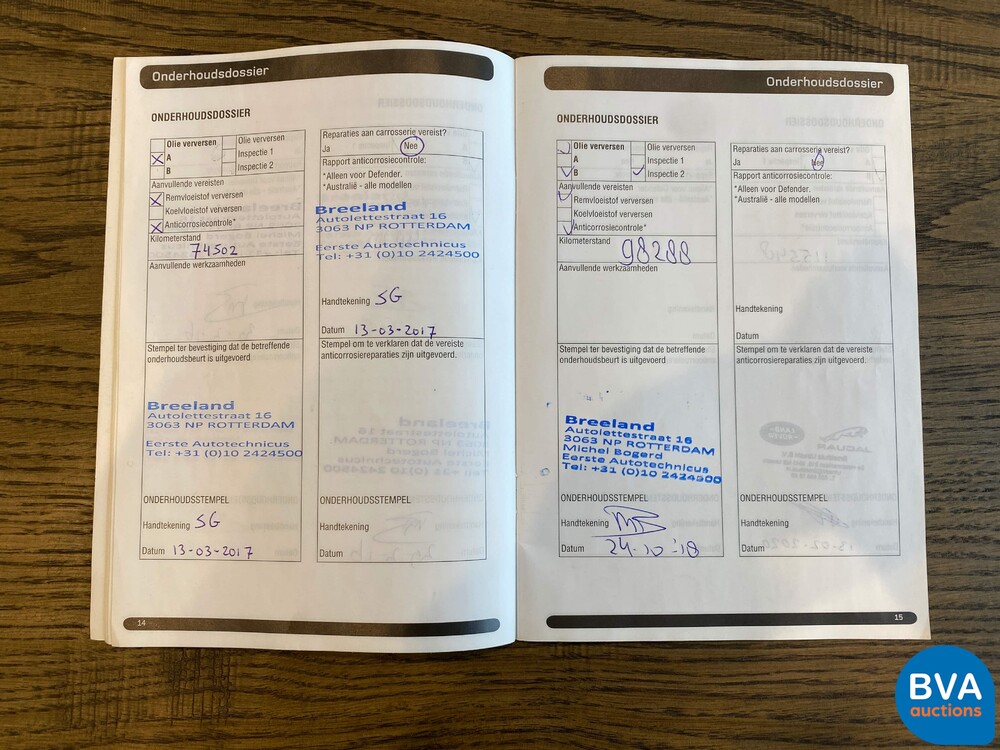 Onderhoudsdossier
ONDERHOUDSDOSSIER
Olie verversen
A
B
Olie verversen
Inspectie 1
Inspectie 2
Aanvullende vereisten
Remvloeistof verversen
Koelvloeistof verversen
Anticorrosiecontrole*
Kilometerstand
74502
Aanvullende werkzaamheden
Stempel ter bevestiging dat de betreffende
onderhoudsbeurt is uitgevoerd
Breeland
Autolettestraat 16
3063 NP ROTTERDAM
Eerste Autotechnicus
Tel: +31 (0)10 2424500
ONDERHOUDSSTEMPEL
Handtekening SG
Datum 13-03-2017
Reparaties aan carrosserie vereist?
Ja Nee
Rapport anticorrosiecontrole:
*Alleen voor Defender.
*Australië - alle modellen
Breeland
Autolettestraat 16
3063 NP ROTTERDAM
Eerste Autotechnicus
Tel: +31 (0)10 2424500
Handtekening SG
Datum 13-03-2017
Stempel om te verklaren dat de vereiste
anticorrosiereparaties zijn uitgevoerd.
Handtekening
Datum
14
Onderhoudsdossier
ONDERHOUDSDOSSIER
Olie verversen
A
B
Olie verversen
Inspectie 1
Inspectie 2
Aanvullende vereisten
Remvloeistof verversen
Koelvloeistof verversen
Anticorrosiecontrole*
Kilometerstand
98288
Aanvullende werkzaamheden
Stempel ter bevestiging dat de betreffende
onderhoudsbeurt is uitgevoerd
Breeland
Autolettestraat 16
3063 NP ROTTERDAM
Michel Bogerd
Eerste Autotechnicus
Tel: +31 (0)10 2424500
ONDERHOUDSSTEMPEL
Handtekening
Datum 24-10-'18
Reparaties aan carrosserie vereist?
Ja Nee
Rapport anticorrosiecontrole:
*Alleen voor Defender.
*Australië - alle modellen
Handtekening
Datum
Stempel om te verklaren dat de vereiste
anticorrosiereparaties zijn uitgevoerd.
ONDERHOUDSSTEMPEL
Handtekening
Datum
15
BVA
auctions